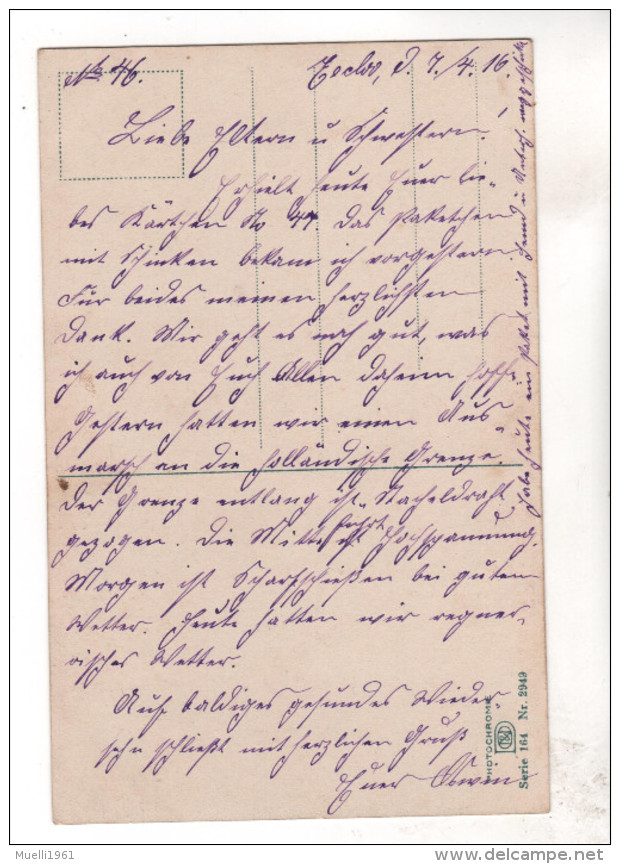 No 46. Eecloo, d. 7./4. 16.
Liebe Eltern u Schwestern!
Erhielt heute Euer lie-
bes Kärtchen No 47. Das Paketchen
mit Schinken bekam ich vorgestern.
Für beides meinen herzlichsten
Dank. Mir geht es noch gut, was
ich auch von Euch Allen daheim hoffe.
Gestern hatten wir einen Aus-
marsch an die holländische Grenze.
Der Grenze entlang ist Stacheldraht
gezogen. Die Mitte führt Hochspannung.
Morgen ist Scharfschießen bei gutem
Wetter. Heute hatten wir regner-
isches Wetter.
Auf baldiges gesundes Wieder-
sehn schließt mit herzlichen Gruß
Euer Oswin
Habe heute ein Paket mit Hemd u Unterh. weggeschickt
PHOTOCHROMIE
Serie 164 Nr. 2949
Muelli1961
www.delcampe.net